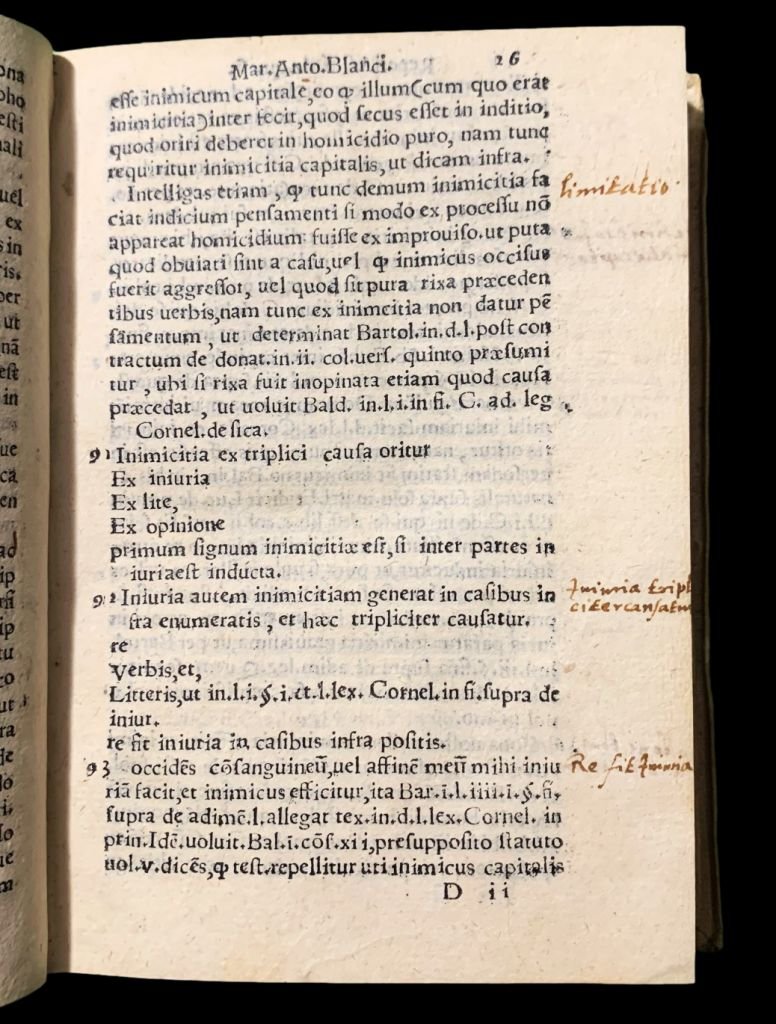 Mar. Anto. Blanci. 26
esse inimicum capitalẽ, eo ꝙ illum (cum quo erat
inimicitia) interfecit, quod secus esset in inditio,
quod oriri deberet in homicidio puro, nam tunc
requiritur inimicitia capitalis, ut dicam infra.
Intelligas etiam, ꝙ tunc demum inimicitia fa
ciat indicium pensamenti si modo ex processu nõ
appareat homicidium fuisse ex improuiso. ut puta
quod obuiati sint a casu, uel ꝙ inimicus occisus
fuerit aggressor, uel quod sit pura rixa præceden
tibus uerbis, nam tunc ex inimcitia non datur pẽ
samentum, ut determinat Bartol. in. d. l. post con
tractum de donat. in. ii. col. uers. quinto præsumi
tur, ubi si rixa fuit inopinata etiam quod causa
præcedat, ut uoluit Bald. in. l. i. in fi. C. ad. leg
Cornel. de sica.
91 Inimicitia ex triplici causa oritur
Ex iniuria
Ex lite,
Ex opinione
primum signum inimicitiæ est, si inter partes in
iuria est inducta.
92 Iniuria autem inimicitiam generat in casibus in
fra enumeratis, et hæc tripliciter causatur.
re
Verbis, et,
Litteris, ut in. l. i. §. i. et. l. lex. Cornel. in fi. supra de
iniur.
re fit iniuria in casibus infra positis.
93 occidẽs cõsanguineũ, uel affinẽ meũ mihi iniu
riã facit, et inimicus efficitur, ita Bar. i. l. iiii. i. §. fi,
supra de adimẽ. l. allegat tex. in. d. l. lex. Cornel. in
prin. Idẽ. uoluit. Bal. i. cõs. xi i, presupposito statuto
uol. v. dicẽs, ꝙ test. repellitur uti inimicus capitalis
D ii
limitatio
Iniuria tripl
citer causatur
Re fit Iniuria